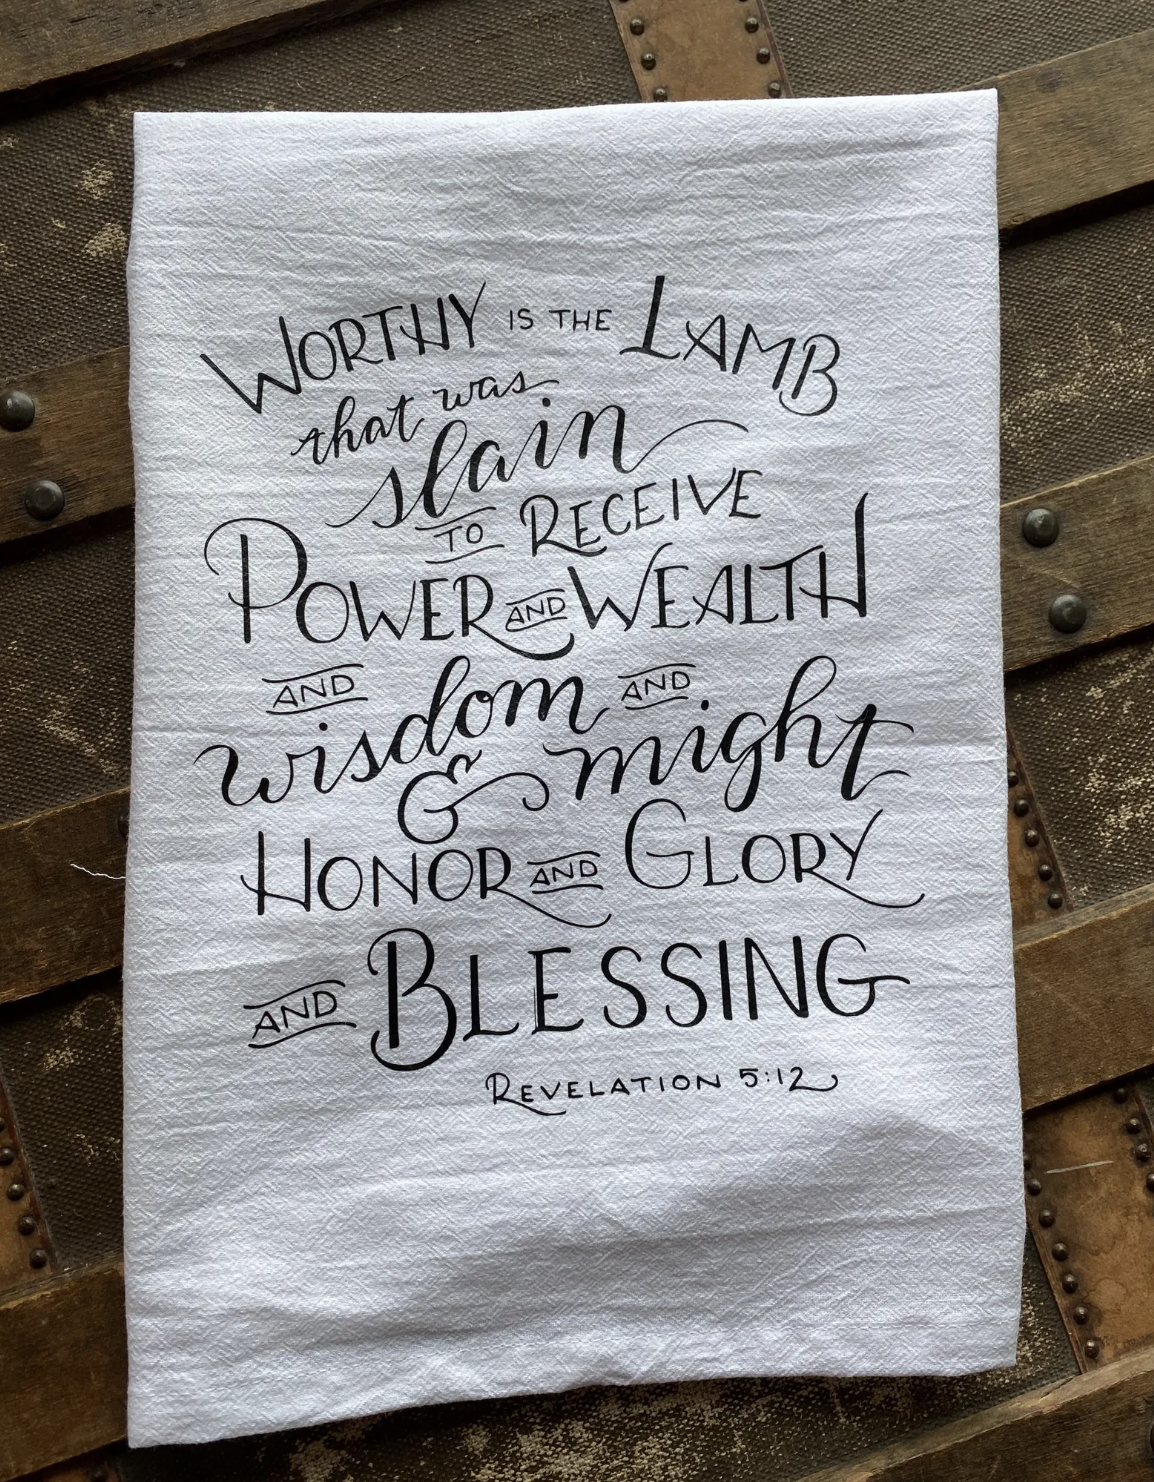 WORTHY IS THE LAMB
that was
slain
TO RECEIVE
POWER AND WEALTH
AND wisdom AND might
& HONOR AND GLORY
AND BLESSING
REVELATION 5:12